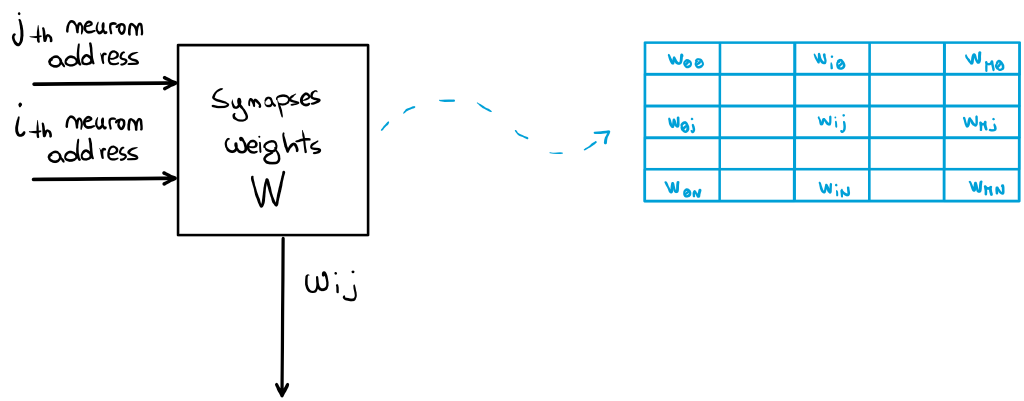 jth neurom
address
ith neurom
address
Synapses
weights
W
wij
w00 wi0 wM0
w0j wij wMj
w0N wiN wMN